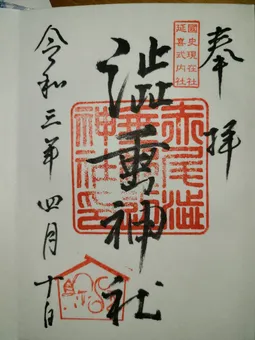 奉拝
國史現在社
延喜式内社
澁垂神社
赤尾澁
神社印
令和三年四月十日